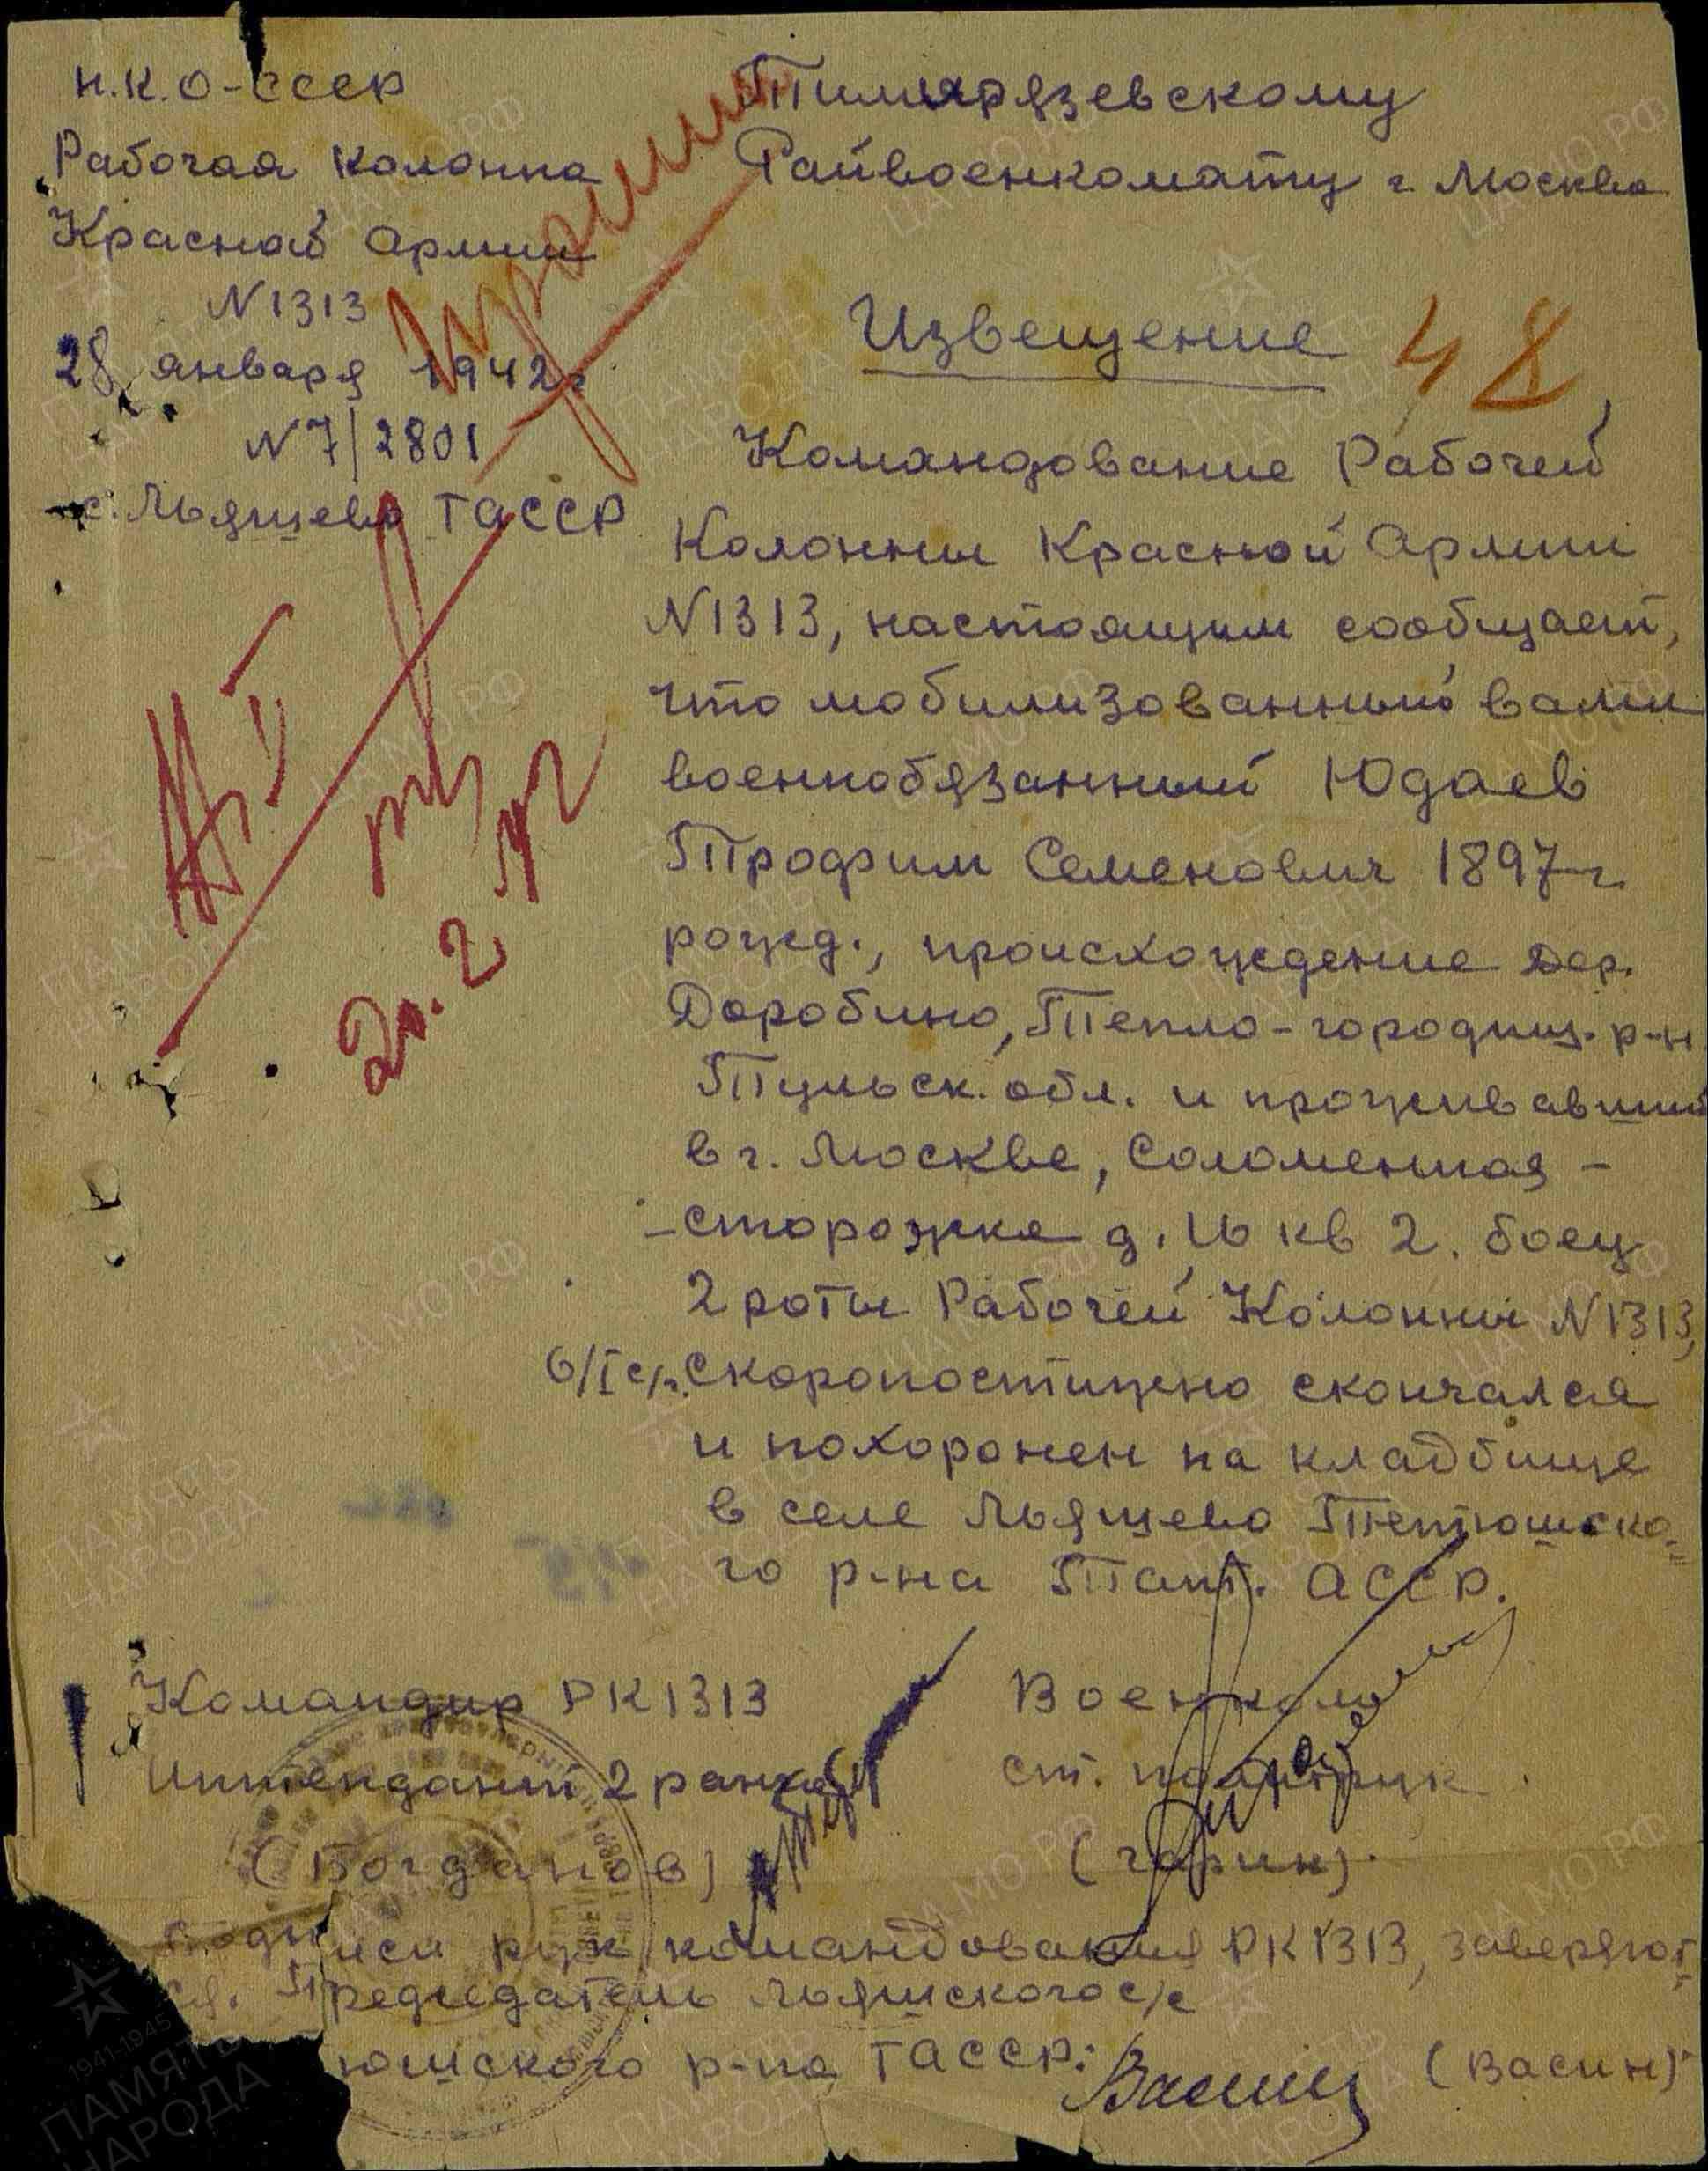 Н.К.О-СССР
Рабочая Колонна
Красной Армии
N 1313
28 января 1942 г
N 7/2801
с. Льящево ТАССР
Тимирязевскому
Райвоенкомату г Москва
Извещение
48
Командование Рабочей
Колонны Красной Армии
N 1313, настоящим сообщает,
что мобилизованный вами
военнобязанный Юдаев
Трофим Семенович 1897 г.
рожд., происхождение дер.
Доробино, Тепло-городищ. р-н
Тульск. обл. и проживавший
в г. Москве, Соломенная -
- сторожка д. 16 кв 2. боец
2 роты Рабочей Колонны N 1313,
6/I с/г. Скоропостижно скончался
и похоронен на кладбище
в селе Льящево Тетюшско-
го р-на Тат. АССР.
Командир РК 1313
Интендант 2 ранга
(Богданов)
Военком
ст. политрук
(Гарин).
Подписи рук командования РК 1313, заверяют
ся. Председатель Льяшского с/с
юшского р-на ТАССР:
Васин (Васин)
ПАМЯТЬ НАРОДА
1941-1945
ЦАМО.РФ